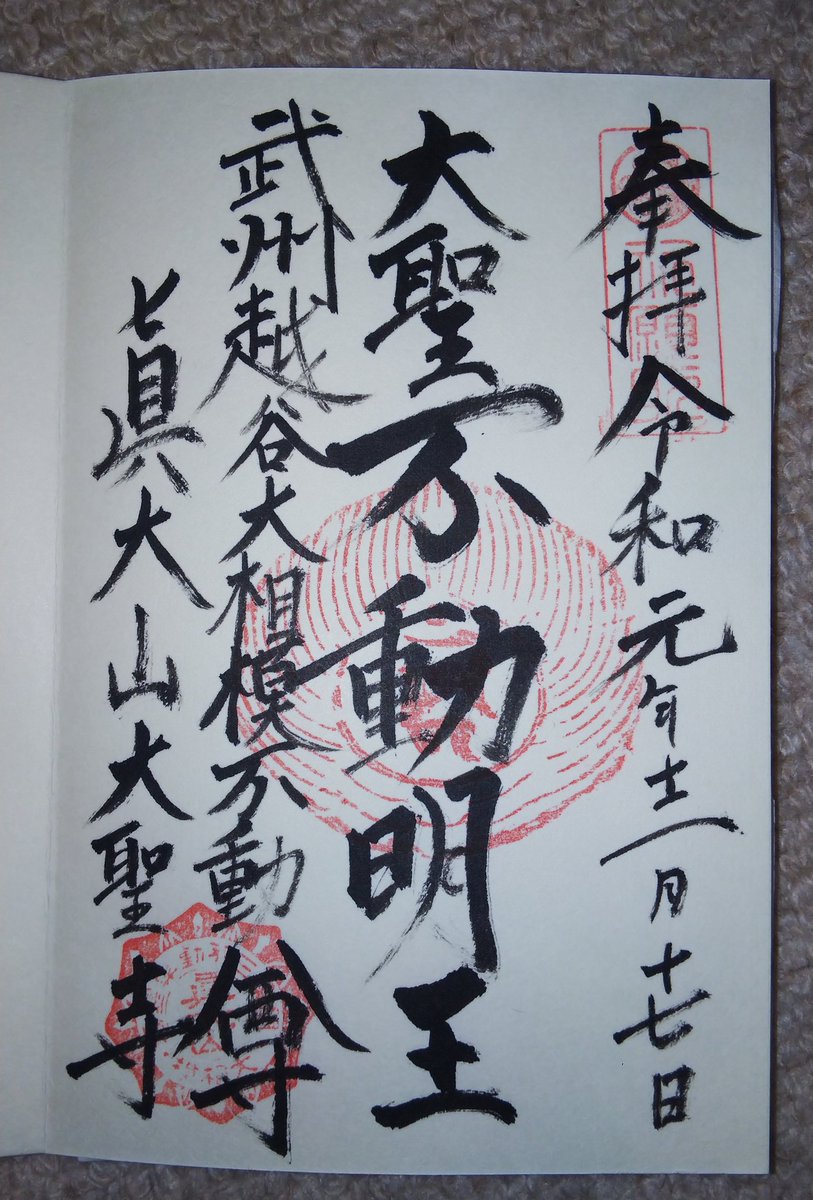 奉拝令和元年十二月十七日
大聖不動明王
武州越谷大相模不動尊
眞大山大聖寺